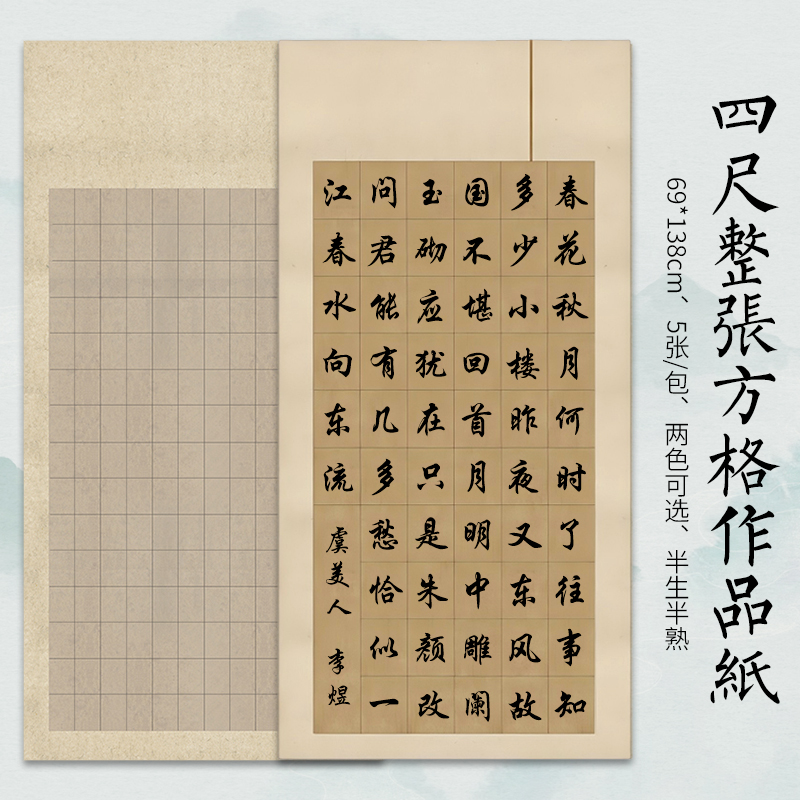 四尺整張方格作品紙
69*138cm、5张/包、两色可选、半生半熟
春花秋月何时了往事知
多少小楼昨夜又东风故
国不堪回首月明中雕阑
玉砌应犹在只是朱颜改
问君能有几多愁恰似一
江春水向东流
虞美人 李煜